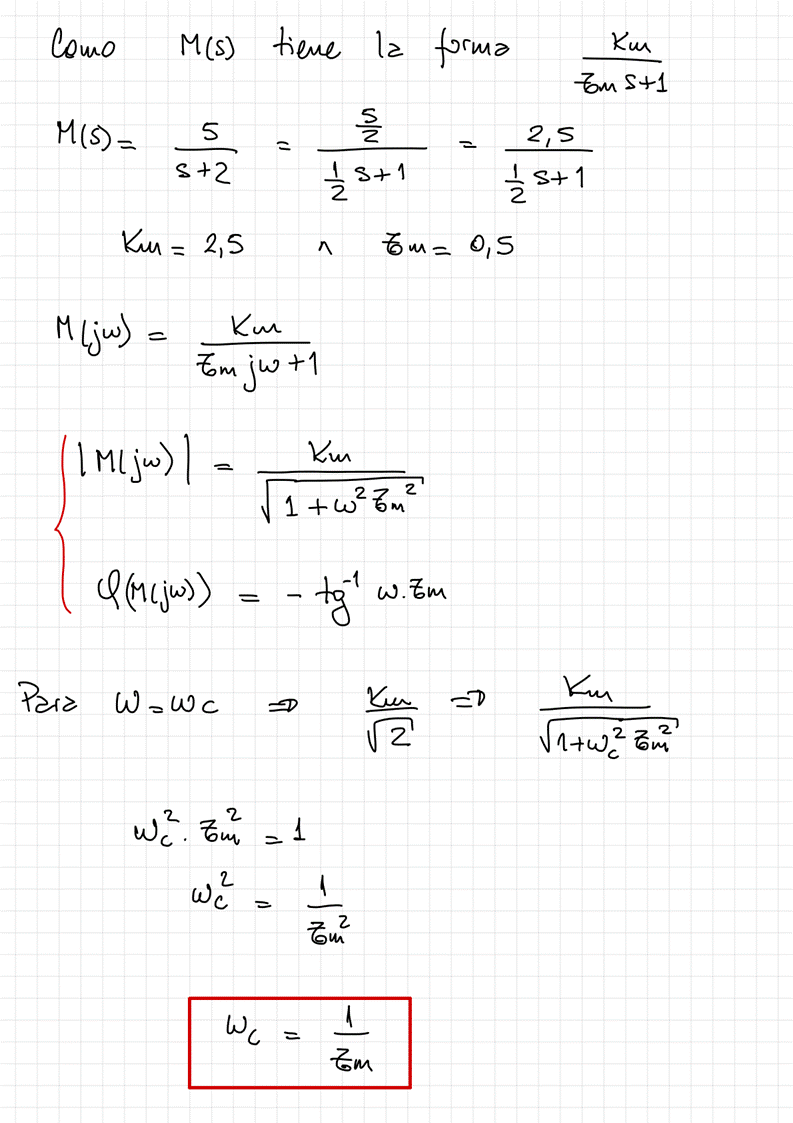 Como M(s) tiene la forma Km / (τm s+1)
M(s) = 5 / (s+2) = (5/2) / (1/2 s+1) = 2,5 / (1/2 s+1)
Km = 2,5 ∧ τm = 0,5
M(jω) = Km / (τm jω + 1)
|M(jω)| = Km / √(1 + ω² τm²)
φ(M(jω)) = - tg⁻¹ ω.τm
Para ω = ωc ⇒ Km / √2 ⇒ Km / √(1+ωc² τm²)
ωc² . τm² = 1
ωc² = 1 / τm²
ωc = 1 / τm